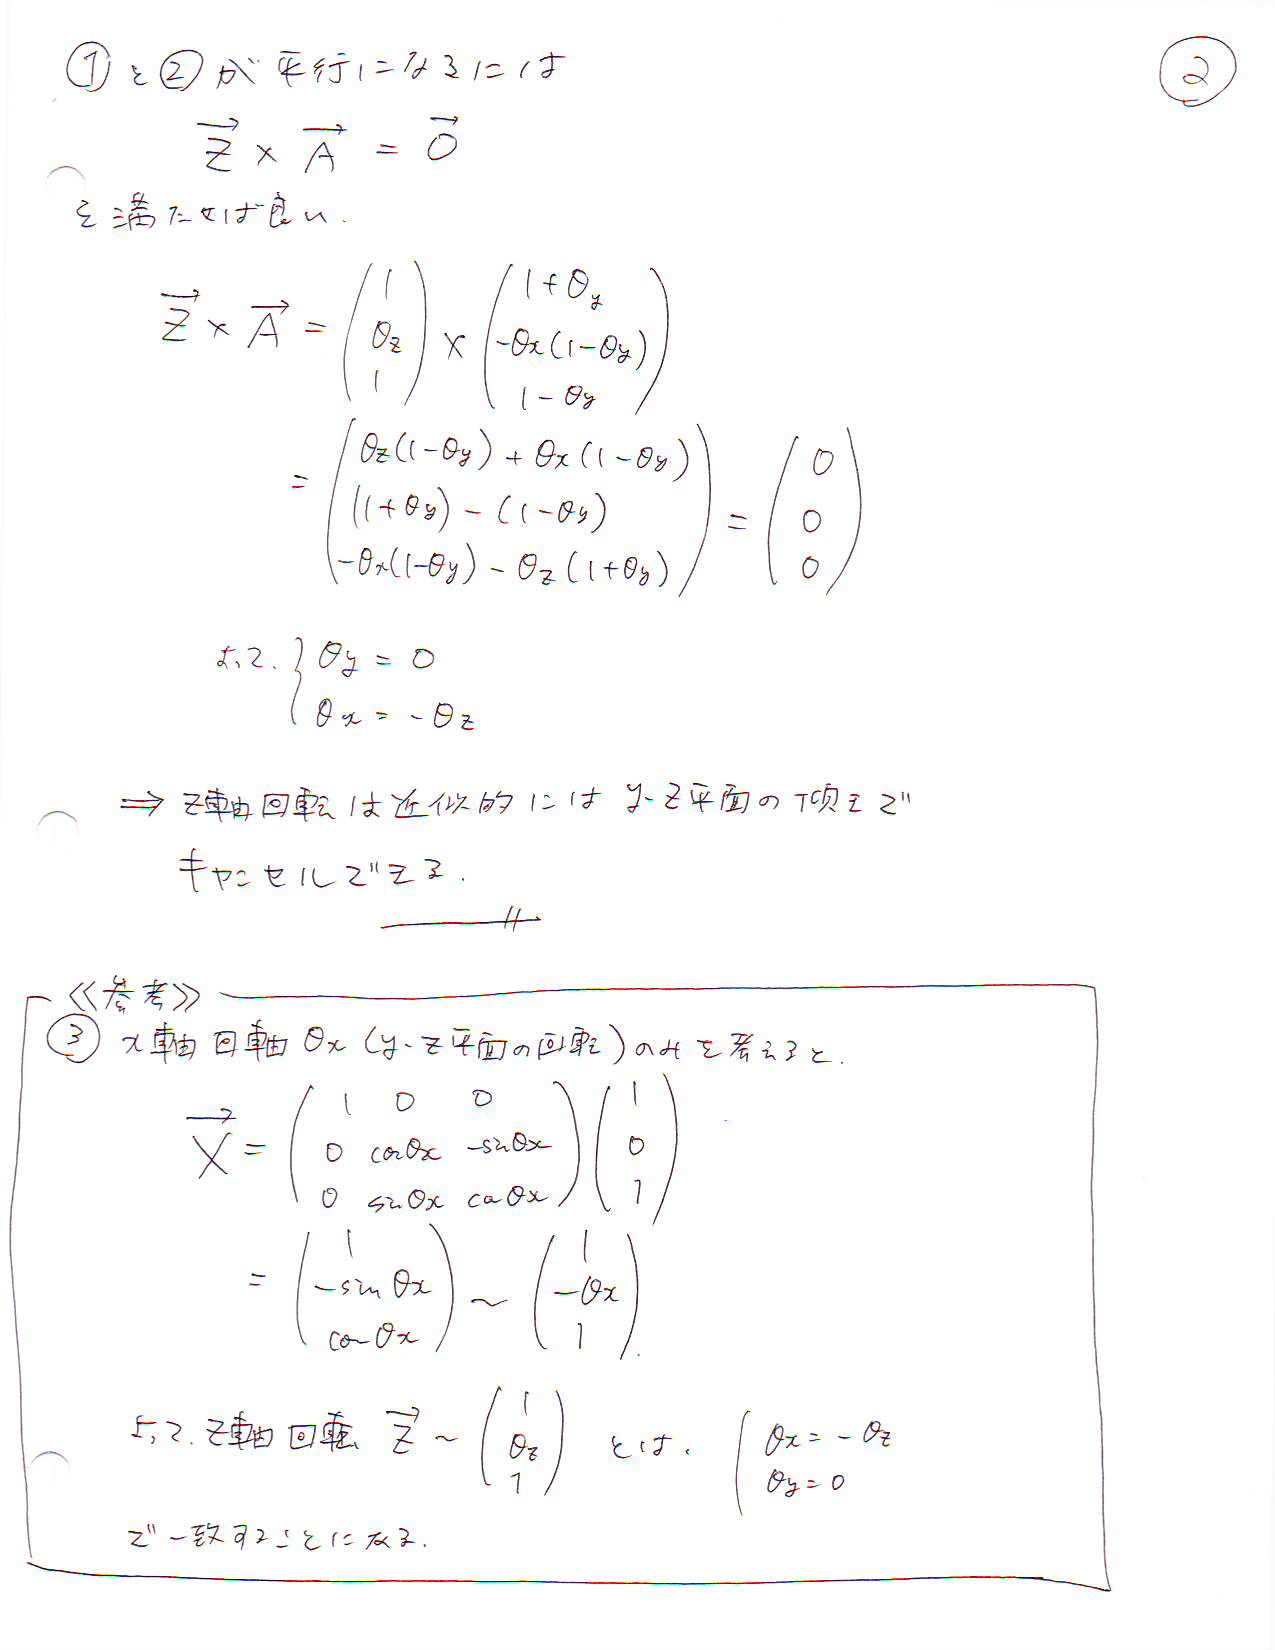 ②
①と②が平行になるには
Z⃗ × A⃗ = 0⃗
を満たせば良い.
Z⃗ × A⃗ = (1, θz, 1) × (1+θy, -θx(1-θy), 1-θy)
= (θz(1-θy) + θx(1-θy), (1+θy) - (1-θy), -θx(1-θy) - θz(1+θy)) = (0, 0, 0)
よって. { θy = 0
θx = -θz
⇒ Z軸回転は近似的には y-z平面の傾きで
キャンセルできる.
《参考》
③ x軸回軸 θx (y-z平面の回転)のみを考えると.
X⃗ = (1 0 0, 0 cosθx -sinθx, 0 sinθx cosθx) (1, 0, 1)
= (1, -sinθx, cosθx) ~ (1, -θx, 1).
よって. Z軸回転 Z⃗ ~ (1, θz, 1) とは. ( θx = -θz
θy = 0
で一致することになる.